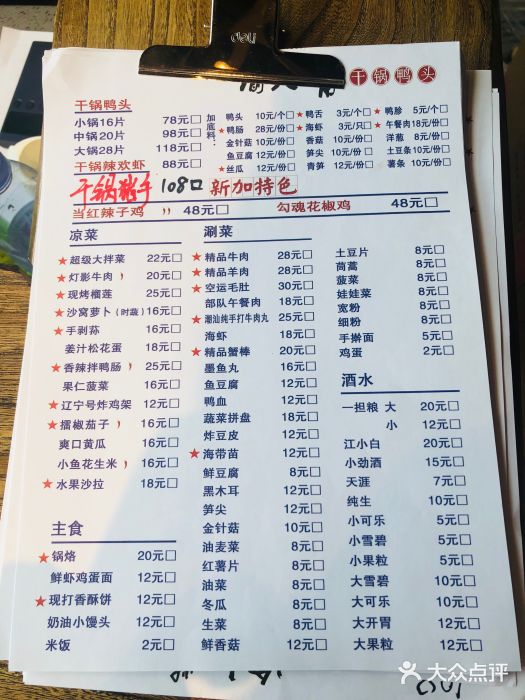 deli
干锅鸭头
干锅鸭头
小锅16片 78元□
中锅20片 98元□
大锅28片 118元□
干锅辣欢虾 88元□
加底料：
鸭头 10元/个□
★鸭肠 28元/份□
金针菇 10元/份□
鱼豆腐 12元/份□
★丝瓜 12元/份□
★鸭舌 3元/个□
★海虾 3元/只□
香菇 10元/份□
笋尖 10元/份□
青笋 12元/份□
★鸭胗 5元/个□
★午餐肉 10元/份□
洋葱 8元/份□
土豆条 10元/份□
薯条 10元/份□
干锅猪手 108口 新加特色
当红辣子鸡 48元□
勾魂花椒鸡 48元□
凉菜
★超级大拌菜 22元□
★灯影牛肉 20元□
★现烤榴莲 25元□
★沙窝萝卜（时蔬）16元□
★手剥荪 16元□
姜汁松花蛋 18元□
★香辣拌鸭肠 25元□
果仁菠菜 16元□
★辽宁号炸鸡架 12元□
★擂椒茄子 16元□
爽口黄瓜 16元□
小鱼花生米 16元□
★水果沙拉 18元□
主食
★锅烙 20元□
鲜虾鸡蛋面 12元□
★现打香酥饼 12元□
奶油小馒头 12元□
米饭 2元□
涮菜
★精品牛肉 28元□
★精品羊肉 28元□
★空运毛肚 30元□
部队午餐肉 18元□
★潮汕纯手打牛肉丸 25元□
海虾 18元□
★精品蟹棒 20元□
墨鱼丸 16元□
鱼豆腐 12元□
鸭血 12元□
蔬菜拼盘 18元□
炸豆皮 12元□
★海带苗 12元□
鲜豆腐 8元□
黑木耳 12元□
笋尖 12元□
金针菇 10元□
油麦菜 8元□
红薯片 8元□
油菜 8元□
冬瓜 8元□
生菜 8元□
鲜香菇 12元□
土豆片 8元□
茼蒿 8元□
菠菜 8元□
娃娃菜 8元□
宽粉 8元□
细粉 8元□
手擀面 5元□
鸡蛋 2元□
酒水
一担粮 大 20元□
小 12元□
江小白 20元□
小劲酒 15元□
天涯 7元□
纯生 10元□
小可乐 5元□
小雪碧 5元□
小果粒 5元□
大雪碧 12元□
大可乐 10元□
大开胃 12元□
大果粒 12元□
大众点评